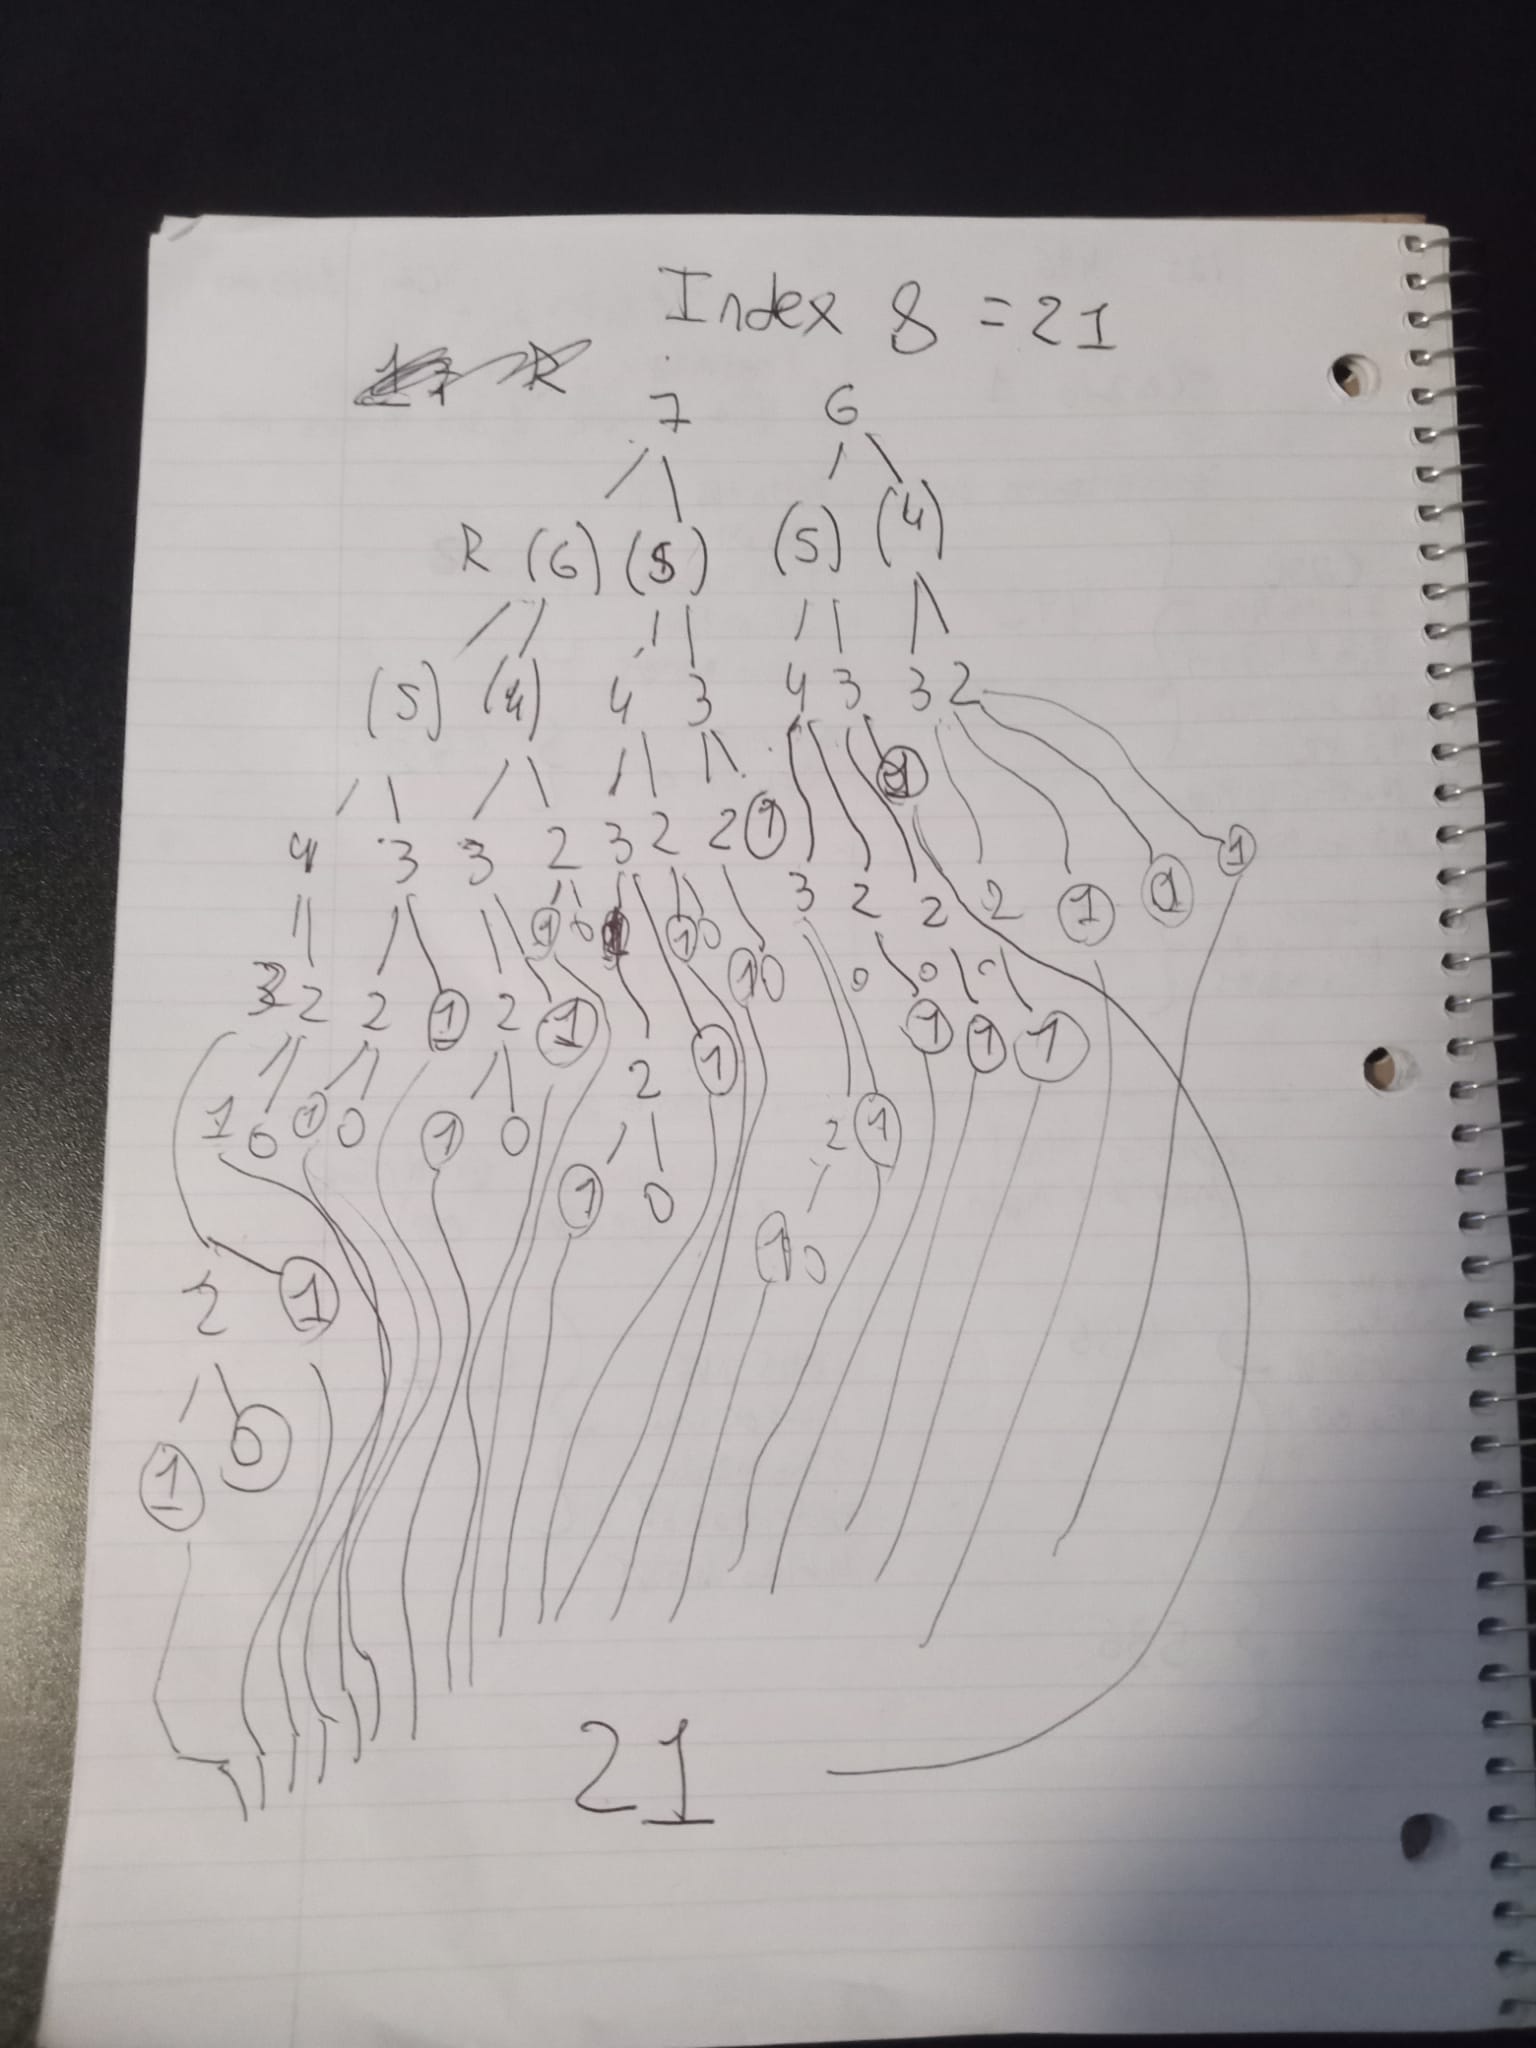 Index 8 = 21
7 6
R (6) (5) (5) (4)
(5) (4) 4 3 4 3 3 2
1
4 3 3 2 3 2 2 1 3 2 2 2 1 1 1
1 0 1 0
3 2 2 1 2 1 1 0 0 0 0
2 1 1 1 1
1 0 1 0 1 0 2 1
1 0
1 0
2 1
1 0
21